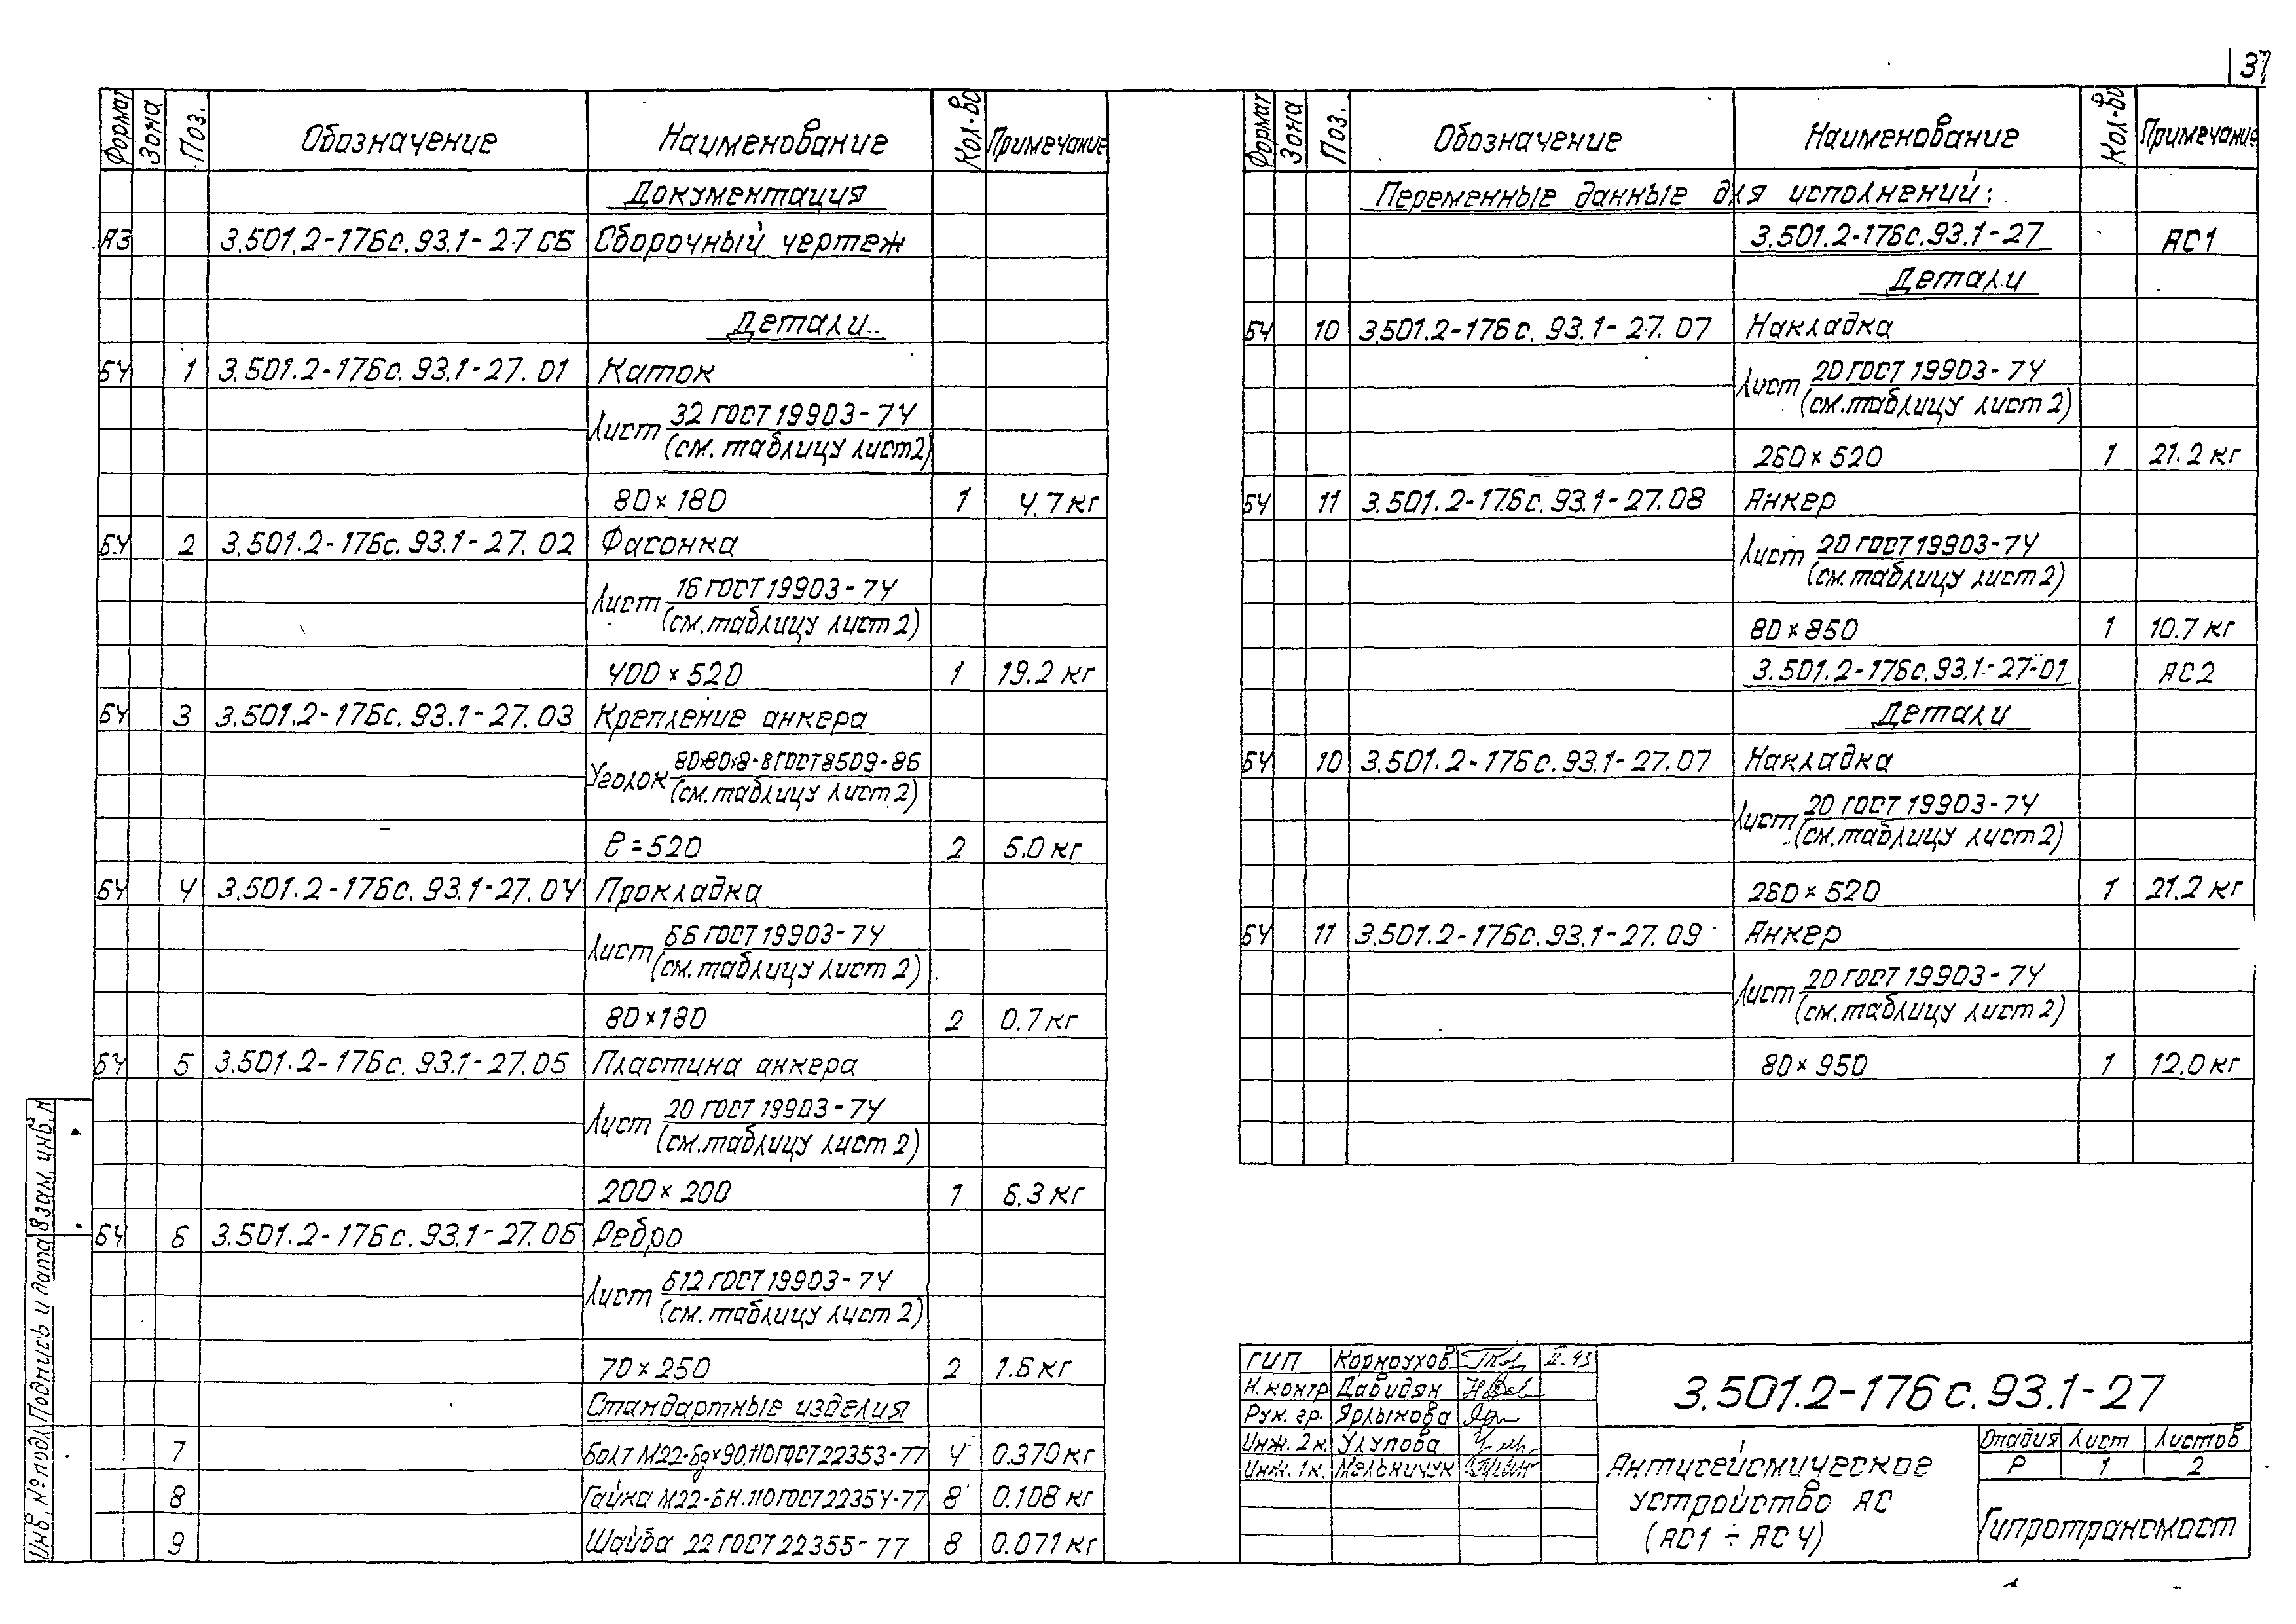 37
Формат Зона Поз. Обозначение Наименование Кол-во Примечание
Документация
А3 3.501.2-176с.93.1-27 СБ Сборочный чертеж
Детали
БЧ 1 3.501.2-176с.93.1-27.01 Каток
Лист 32 ГОСТ 19903-74
(см. таблицу лист 2)
80×180 1 4.7 кг
БЧ 2 3.501.2-176с.93.1-27.02 Фасонка
Лист 16 ГОСТ 19903-74
(см. таблицу лист 2)
400×520 1 19.2 кг
БЧ 3 3.501.2-176с.93.1-27.03 Крепление анкера
Уголок 80×80×8-В ГОСТ 8509-86
(см. таблицу лист 2)
ℓ=520 2 5.0 кг
БЧ 4 3.501.2-176с.93.1-27.04 Прокладка
Лист Б6 ГОСТ 19903-74
(см. таблицу лист 2)
80×180 2 0.7 кг
БЧ 5 3.501.2-176с.93.1-27.05 Пластина анкера
Лист 20 ГОСТ 19903-74
(см. таблицу лист 2)
200×200 1 6.3 кг
БЧ 6 3.501.2-176с.93.1-27.06 Ребро
Лист Б12 ГОСТ 19903-74
(см. таблицу лист 2)
70×250 2 1.6 кг
Стандартные изделия
7 Болт М22-6g×90.110 ГОСТ 22353-77 4 0.370 кг
8 Гайка М22-6Н.110 ГОСТ 22354-77 8 0.108 кг
9 Шайба 22 ГОСТ 22355-77 8 0.071 кг
Формат Зона Поз. Обозначение Наименование Кол-во Примечание
Переменные данные для исполнений:
3.501.2-176с.93.1-27 АС1
Детали
БЧ 10 3.501.2-176с.93.1-27.07 Накладка
Лист 20 ГОСТ 19903-74
(см. таблицу лист 2)
260×520 1 21.2 кг
БЧ 11 3.501.2-176с.93.1-27.08 Анкер
Лист 20 ГОСТ 19903-74
(см. таблицу лист 2)
80×850 1 10.7 кг
3.501.2-176с.93.1-27-01 АС2
Детали
БЧ 10 3.501.2-176с.93.1-27.07 Накладка
Лист 20 ГОСТ 19903-74
(см. таблицу лист 2)
260×520 1 21.2 кг
БЧ 11 3.501.2-176с.93.1-27.09 Анкер
Лист 20 ГОСТ 19903-74
(см. таблицу лист 2)
80×950 1 12.0 кг
ГИП Корноухов
Н. контр Давидян
Рук. гр. Ярлыкова
Инж. 2к. Улупова
Инж. 1к. Мельничук
3.501.2-176с.93.1-27
Антисейсмическое
устройство АС
(АС1 ÷ АС4)
Стадия Лист Листов
Р 1 2
Гипротрансмост
Инв. № подл. Подпись и дата Взам. инв. №